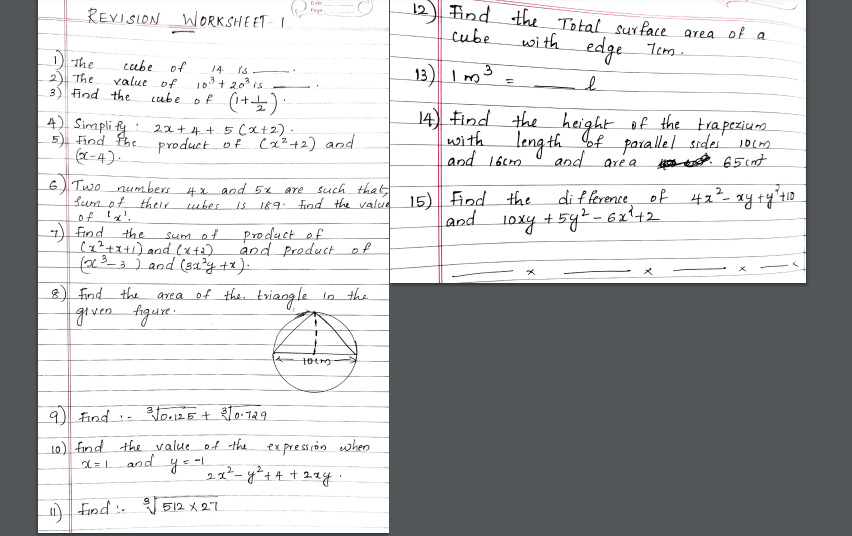 Date
Page
REVISION WORKSHEET-1
1) The cube of 14 is ____.
2) The value of 10³ + 20³ is ____.
3) Find the cube of (1+1/2).
4) Simplify : 2x + 4 + 5(x+2).
5) Find the product of (x²+2) and
(x-4).
6) Two numbers 4x and 5x are such that,
sum of their cubes is 189. Find the value
of 'x'.
7) Find the sum of product of
(x²+x+1) and (x+2) and product of
(x³-3) and (3x²y+x).
8) Find the area of the triangle in the
given figure.
10cm
9) Find :- ∛0.125 + ∛0.729
10) Find the value of the expression when
x=1 and y=-1
2x²-y²+4+2xy.
11) Find :- ∛512×27
12) Find the Total surface area of a
cube with edge 7cm.
13) 1m³ = ____ l
14) Find the height of the trapezium
with length of parallel sides 10cm
and 16cm and area 65cm²
15) Find the difference of 4x²-xy+y²+10
and 10xy+5y²-6x²+2